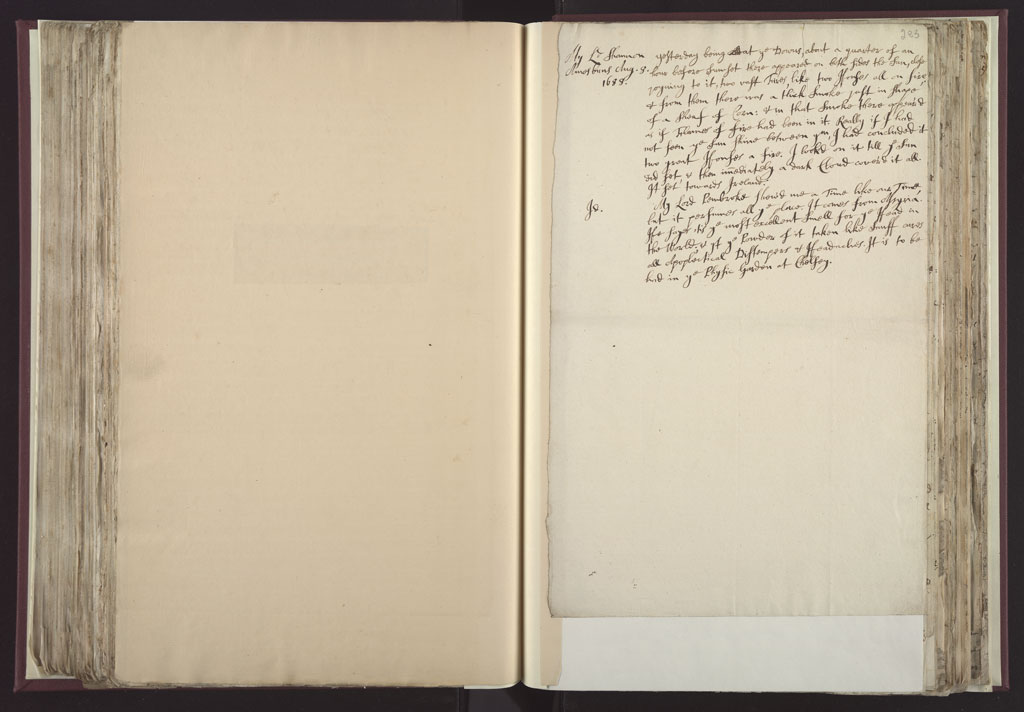 285
My Ld. Shannon
Amesburis Aug. 8.
1688.
yesterday being at ye Downs, about a quarter of an
hour before Sunset there appeared on both sides the Sun, close
joyning to it, two vast Fires like two Houses all on fire
& from them there was a thick Smoke just in shape
of a Sheaf of Corn: & in that Smoke there appeared
as if Flames of fire had been in it. Really if I had
not seen ye Sun shine between ym, I had concluded it
two great Houses a fire. I look'd on it till ye Sun
did set & then immediately a dark Cloud cover'd it all.
It set towards Ireland.
Id.
My Lord Pembroke shew'd me a Time like our Time,
but it perfumes all ye place. It comes from
He says its ye most excellent smell for ye Head in
the World & yt ye Powder of it taken like snuff cures
all Apoplectical Distempers & Headaches. It is to be
had in ye Physic Garden at Chelsey.